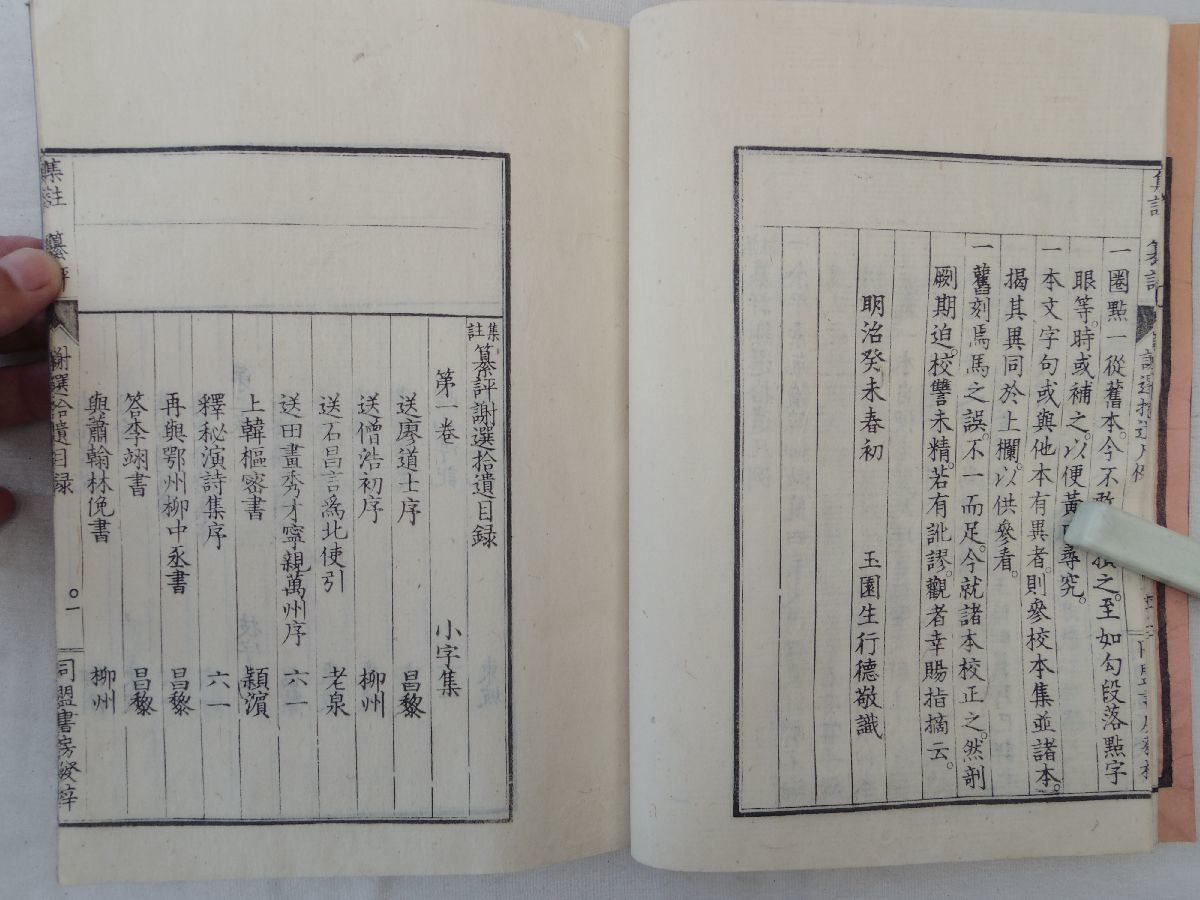 一圈點一從舊本今不敢損之。至如勾段落點字
眼等。時或補之。以便黃尋究。
一本文字句或與他本有異者。則參校本集並諸本。
揭其異同於上欄。以供參看。
一舊刻焉馬之誤。不一而足。今就諸本校正之。然剞
劂期迫。校讐未精。若有訛謬。觀者幸賜指摘云。
明治癸未春初 玉園生行德敬識
集註纂評謝選拾遺目録
第一卷 小字集
送廖道士序 昌黎
送僧浩初序 柳州
送石昌言為北使引 老泉
送田畫秀才寧親萬州序 六一
上韓樞密書 潁濱
釋秘演詩集序 六一
再與鄂州柳中丞書 昌黎
答李翊書 昌黎
與蕭翰林俛書 柳州
集註 纂評 謝選拾遺目録 一 同盟書房發梓